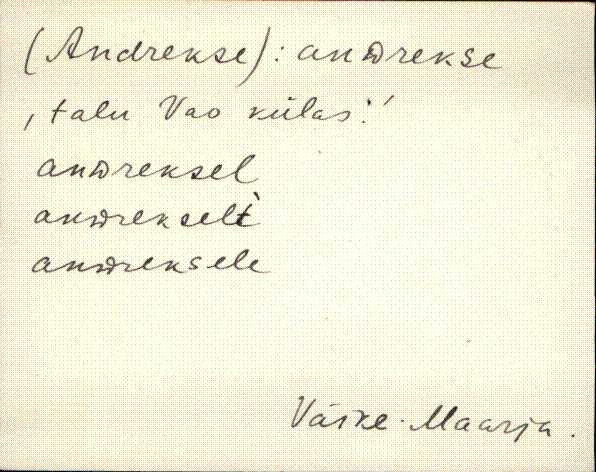 (Andrekse): anᴅrekse
, talu Vao külas.'
anᴅreksel
anᴅrekselt̀
anᴅreksele
Väike-Maarja.